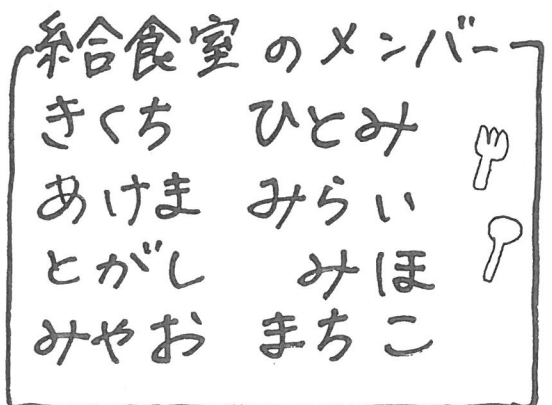 給食室のメンバー
きくち ひとみ
あけま みらい
とがし みほ
みやお まちこ